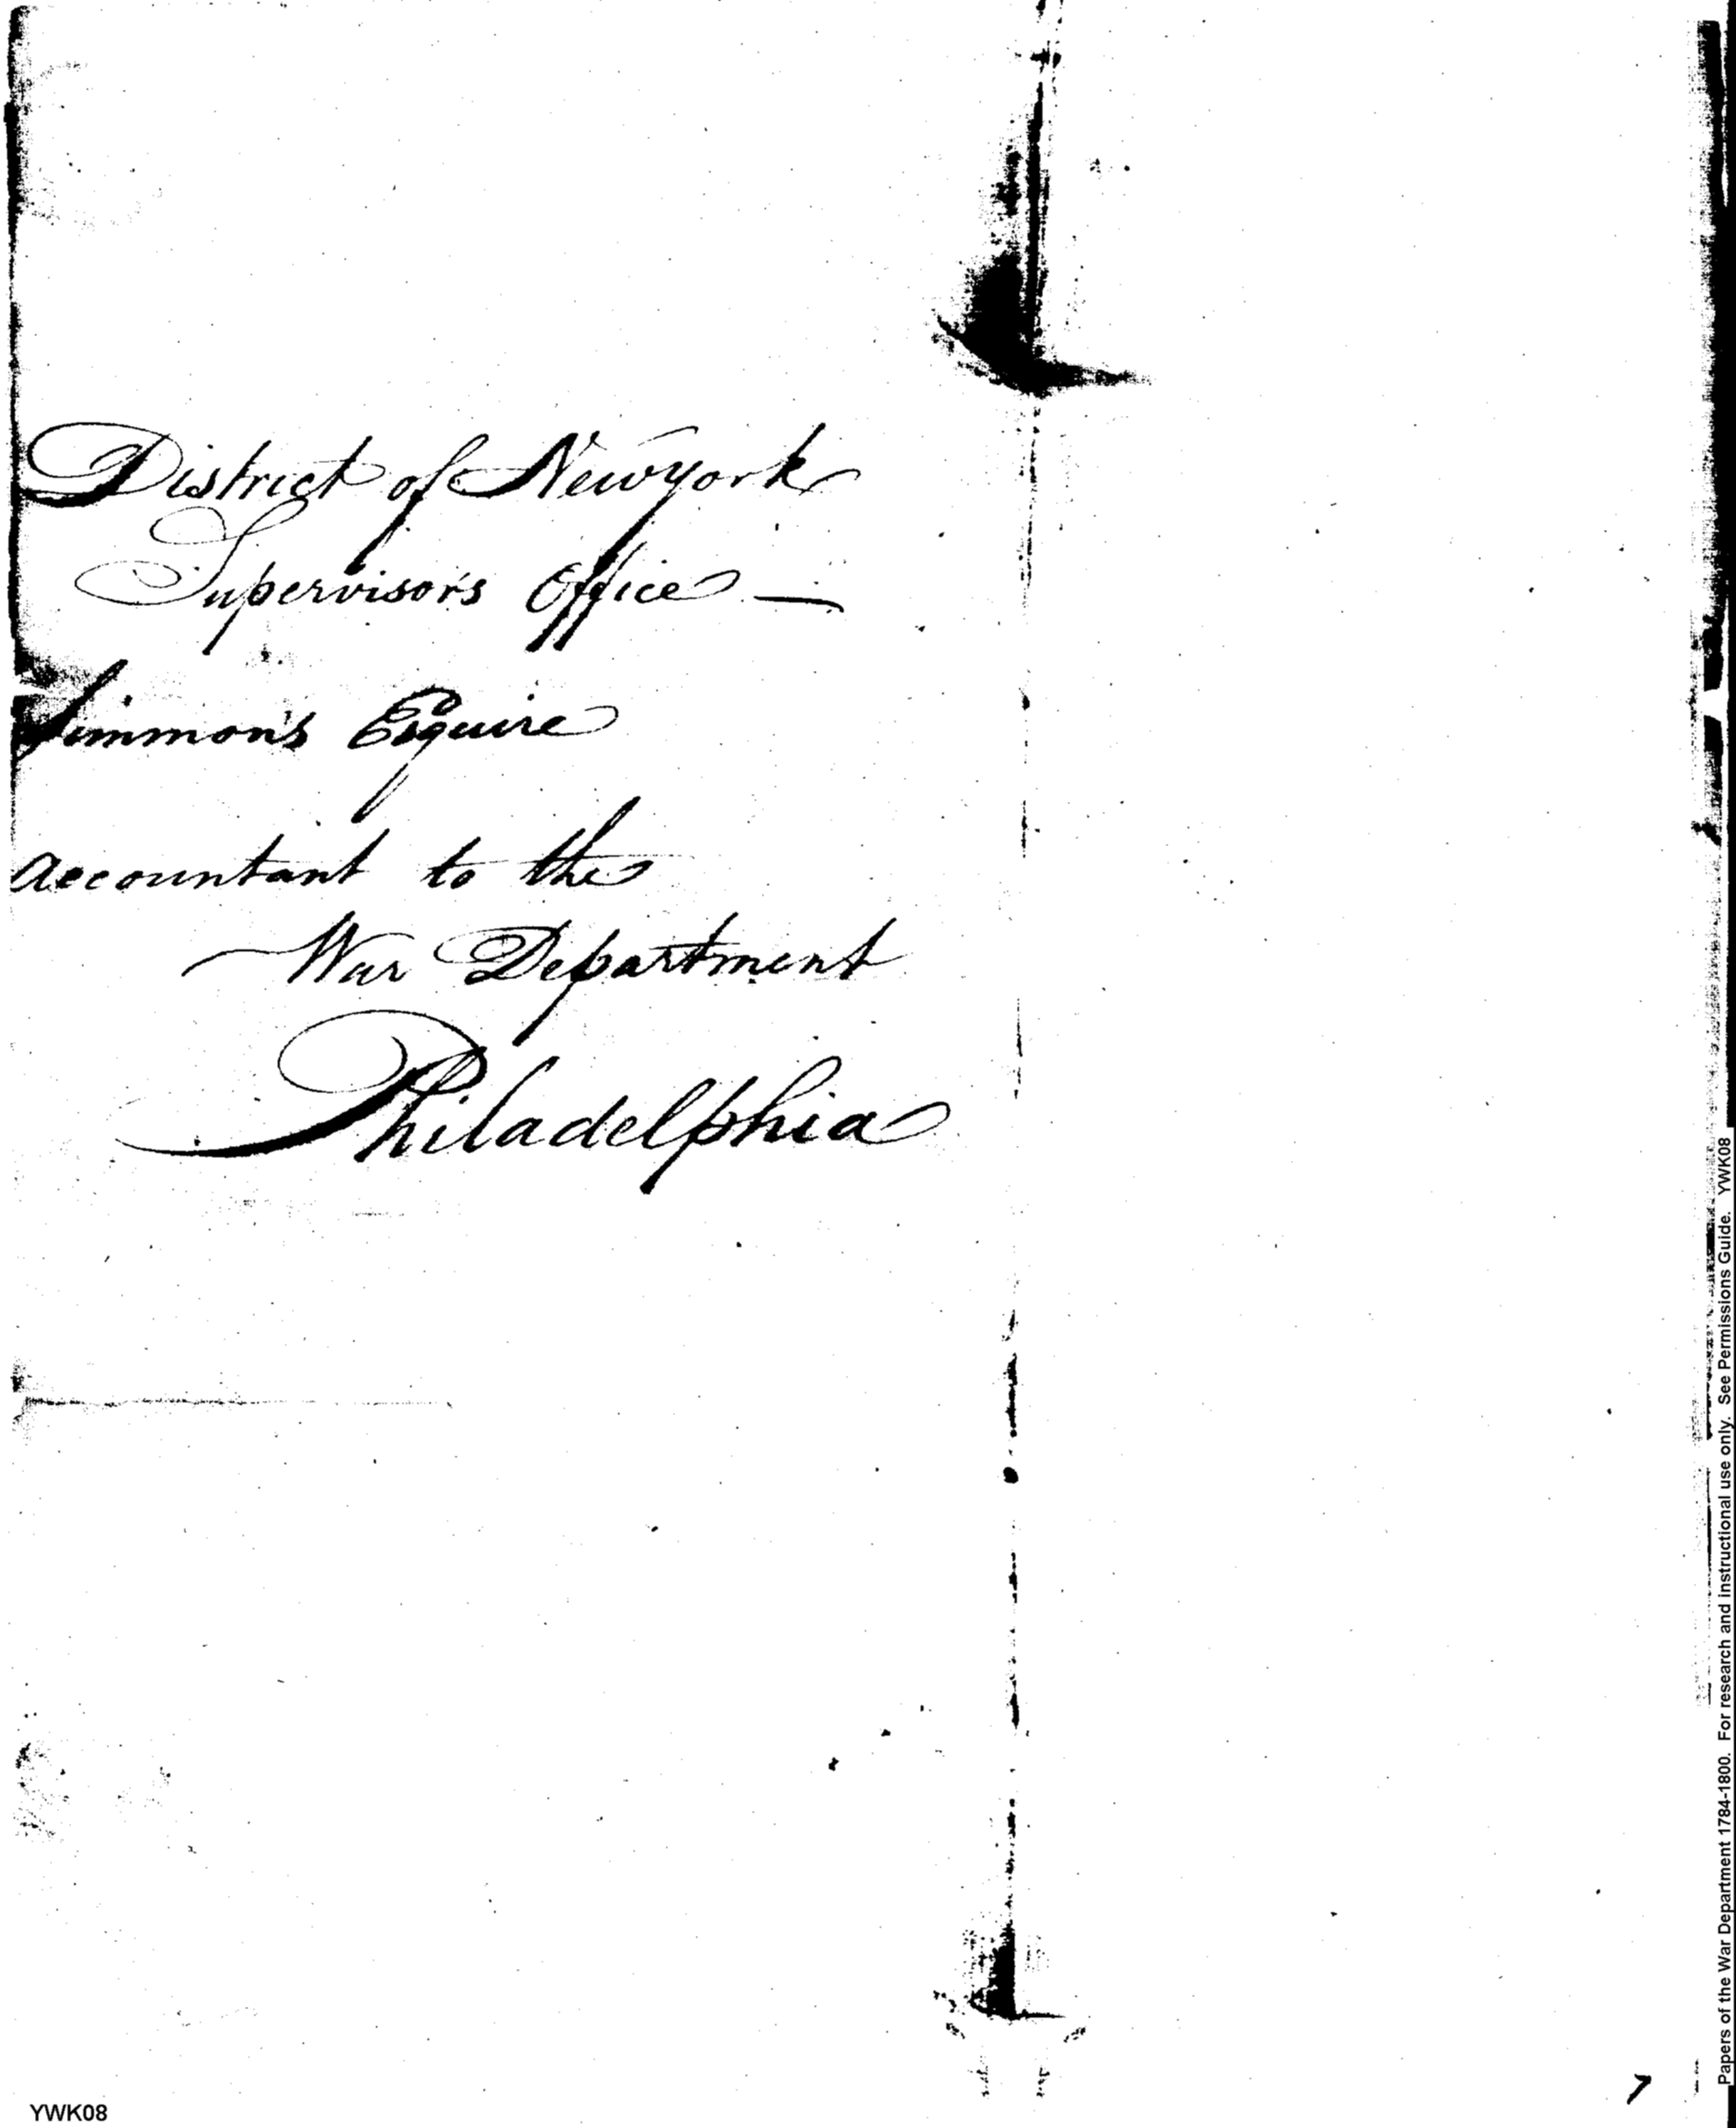 District of Newyork
Supervisor's Office —
Simmons Esquire
Accountant to the
War Department
Philadelphia
Papers of the War Department 1784-1800. For research and instructional use only. See Permissions Guide. YWK08
7
YWK08